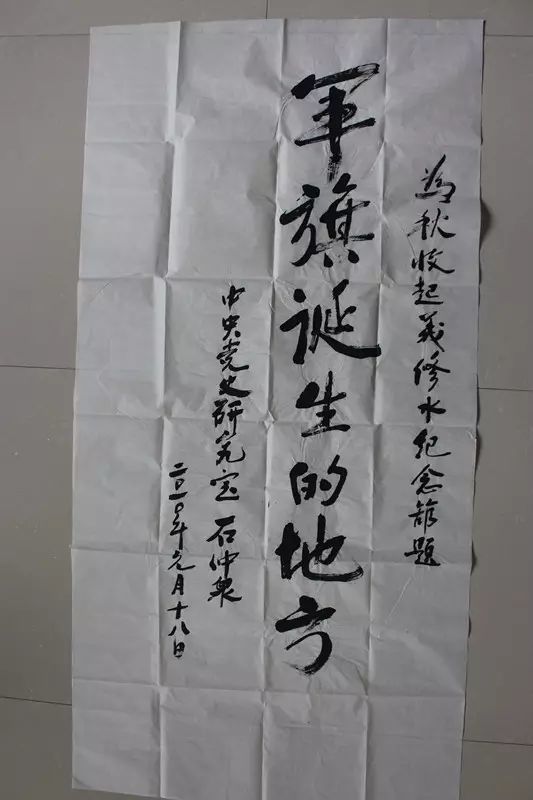 为秋收起义修水纪念馆题
军旗诞生的地方
中央党史研究室 石仲泉
二〇一〇年元月十八日